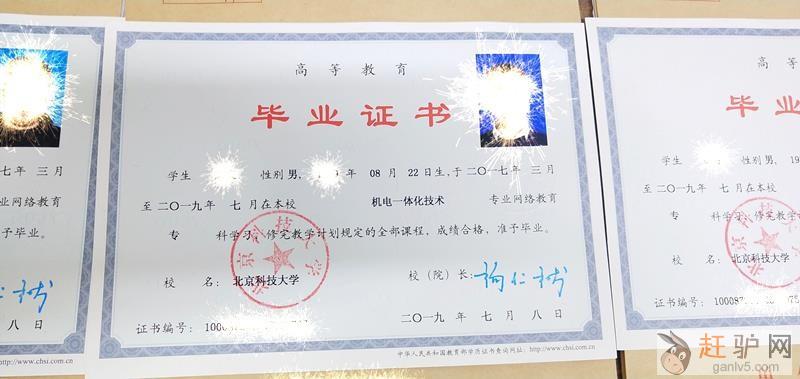 高等教育
毕业证书
学生 性别男, 年 08 月 22 日生,于二〇一七年 三月
至二〇一九年 七月在本校 机电一体化技术 专业网络教育
专 科学习,修完教学计划规定的全部课程,成绩合格,准予毕业。
校 名: 北京科技大学 校(院)长:
北京科技大学
证书编号: 10008 二〇一九 年 七 月 八 日
中华人民共和国教育部学历证书查询网址: http://www.chsi.com.cn
七年 三月
业网络教育
予毕业。
八 日
http://www.chsi.com.cn
高 等
毕 业
学生 性别男, 19
至二〇一九年 七月在本校
专 科学习,修完教学计划规
校 名: 北京科技大学
证书编号: 10008
赶驴网
ganlv5.com